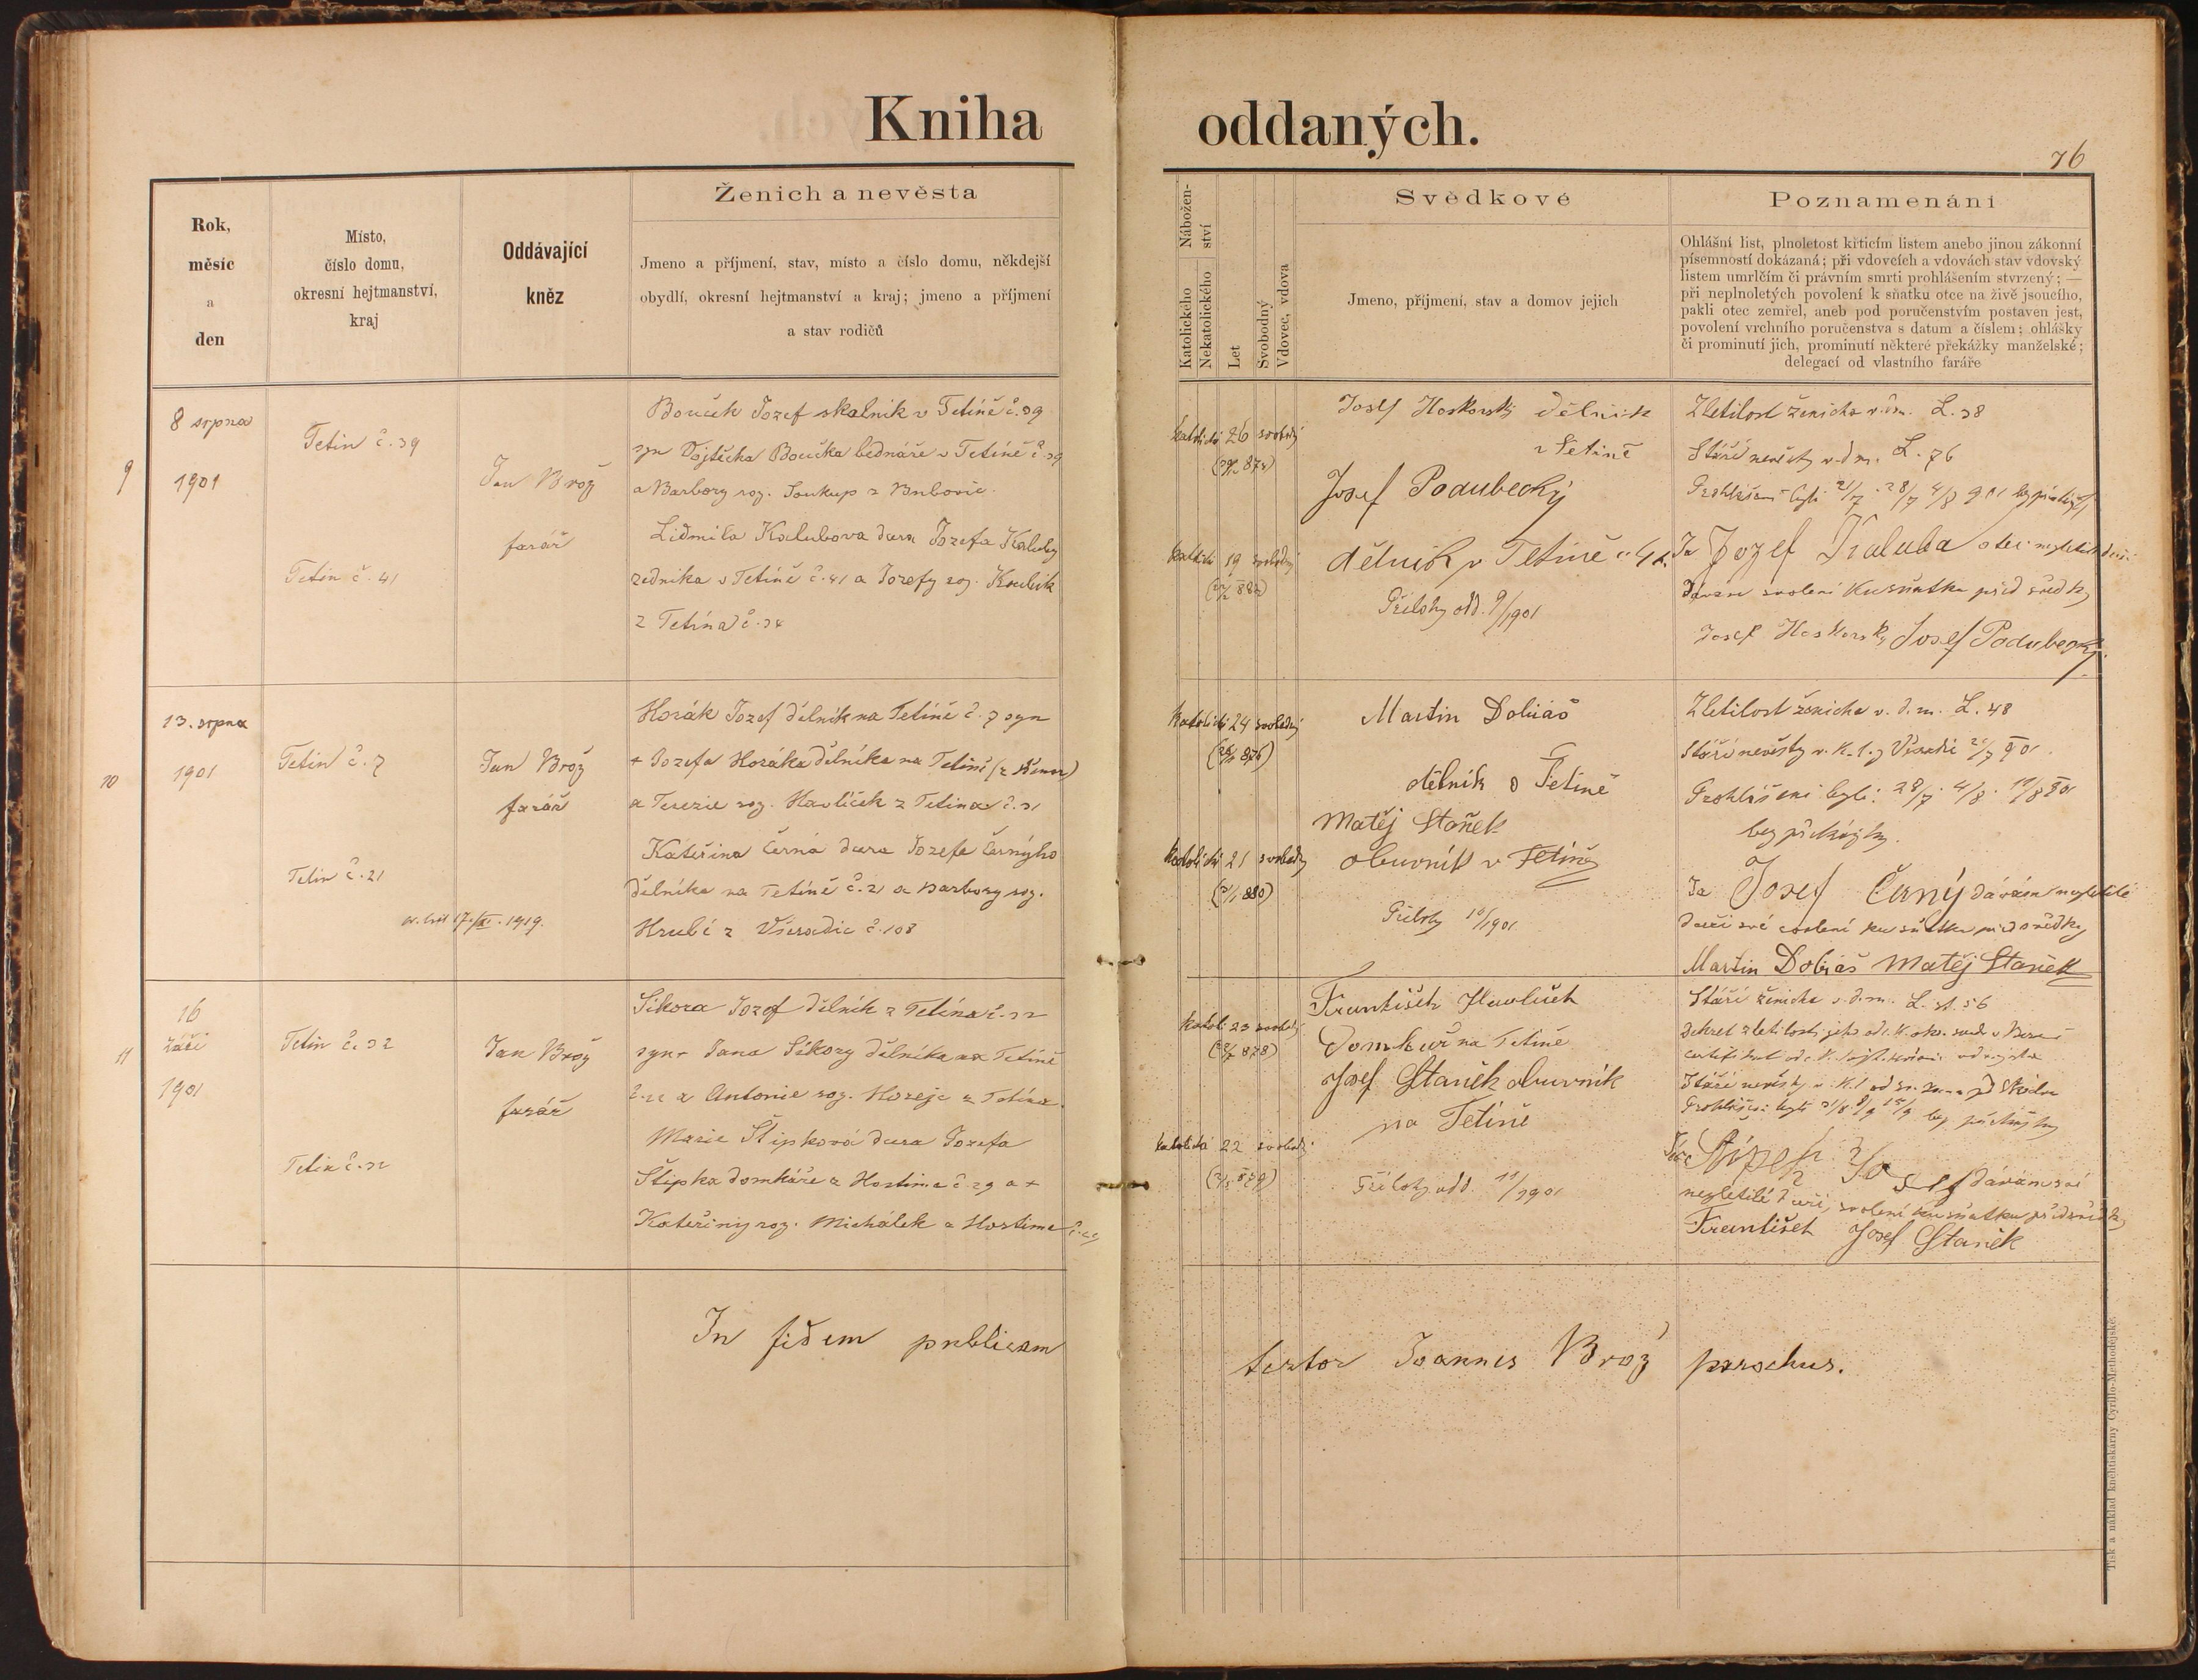 Kniha oddaných.
76
Rok,
měsíc
a
den
Místo,
číslo domu,
okresní hejtmanství,
kraj
Oddávající
kněz
Ženich a nevěsta
Jmeno a příjmení, stav, místo a číslo domu, někdejší
obydlí, okresní hejtmanství a kraj; jmeno a příjmení
a stav rodičů
Nábožen-
ství
Katolického
Nekatolického
Let
Svobodný
Vdovec, vdova
Svědkové
Jmeno, příjmení, stav a domov jejich
Poznamenání
Ohlášní list, plnoletost křticím listem anebo jinou zákonní
písemností dokázaná; při vdovcích a vdovách stav vdovský
listem umrlčím či právním smrti prohlášením stvrzený; —
při neplnoletých povolení k sňatku otce na živě jsoucího,
pakli otec zemřel, aneb pod poručenstvím postaven jest,
povolení vrchního poručenstva s datum a číslem; ohlášky
či prominutí jich, prominutí některé překážky manželské;
delegací od vlastního faráře
9
8 srpna
1901
Tetín č. 39
Tetín č. 41
Jan Brož
farář
Bouček Jozef skalník v Tetíně č. 39
syn Vojtěcha Boučka bednáře v Tetíně č. 39
a Barbory roz. Soukup z Bubovic
Lidmila Kalubova dcera Jozefa Kaluby
zedníka v Tetíně č. 41 a Jozefy roz. Koubík
z Tetína č. 34
26 svobodný
19 svobodný
Josef Hoskovský dělník
z Tetíně
Josef Podubecký
dělník v Tetíně
Přílohy odd. 9/1901
Zletilost ženicha v. d. m. L. 38
Stáří nevěsty v. d. m. L. 76
Prohlášeni byli 21/7 28/7 4/8 901 bez překážky
Ja Jozef Kaluba otec nezletilé dceři
dávám svolení ku sňatku před svědky
Josef Hoskovský Josef Podubecký
10
13. srpna
1901
Tetín č. 7
Tetín č. 21
17/XI. 1919.
Jan Brož
farář
Horák Jozef dělník na Tetíně č. 7 syn
+ Jozefa Horáka dělníka na Tetíně
a Terezie roz. Havlíček z Tetína č. 31
Kateřina Černá dcera Jozefa Černýho
dělníka na Tetíně č. 21 a Barbory roz.
Hrubé z Všeradic č. 108
katolické 24 svobodný
katolické 21 svobodný
Martin Dobiáš
dělník v Tetíně
Matěj Staněk
obuvník v Tetíně
Přílohy 10/1901
Zletilost ženicha v. d. m. L. 48
Stáří nevěsty v. k. l. z Všeradic
Prohlášeni byli: 28/7 4/8 11/8 901
bez překážky.
Ja Josef Černý dávám nezletilé
dceři své svolení ku sňatku před svědky
Martin Dobiáš Matěj Staněk
11
16
září
1901
Tetín č. 32
Tetín č. 32
Jan Brož
farář
Sikora Jozef dělník z Tetína č. 32
syn + Jana Sikory dělníka na Tetíně
a Antonie roz. Horejc z Tetína
Marie Štípková dcera Jozefa
Štípka domkáře z Hostíma č. 29 a +
Kateřiny roz. Michálek z Hostíma
23 svobodný
katolické 22 svobodný
František Havlíček
Domkář na Tetíně
Josef Staněk obuvník
na Tetíně
Přílohy odd. 11/1901
Stáří ženicha v. d. m. L. st. 56
Prohlášeni byli 1/9 8/9 15/9 bez překážky
Štípek Josef dávám své
nezletilé dceři, svolení ku sňatku před svědky
František Josef Staněk
In fidem publicam
testor Joannes Brož parochus.
Tisk a náklad kněhtiskárny Cyrillo-Methodějské